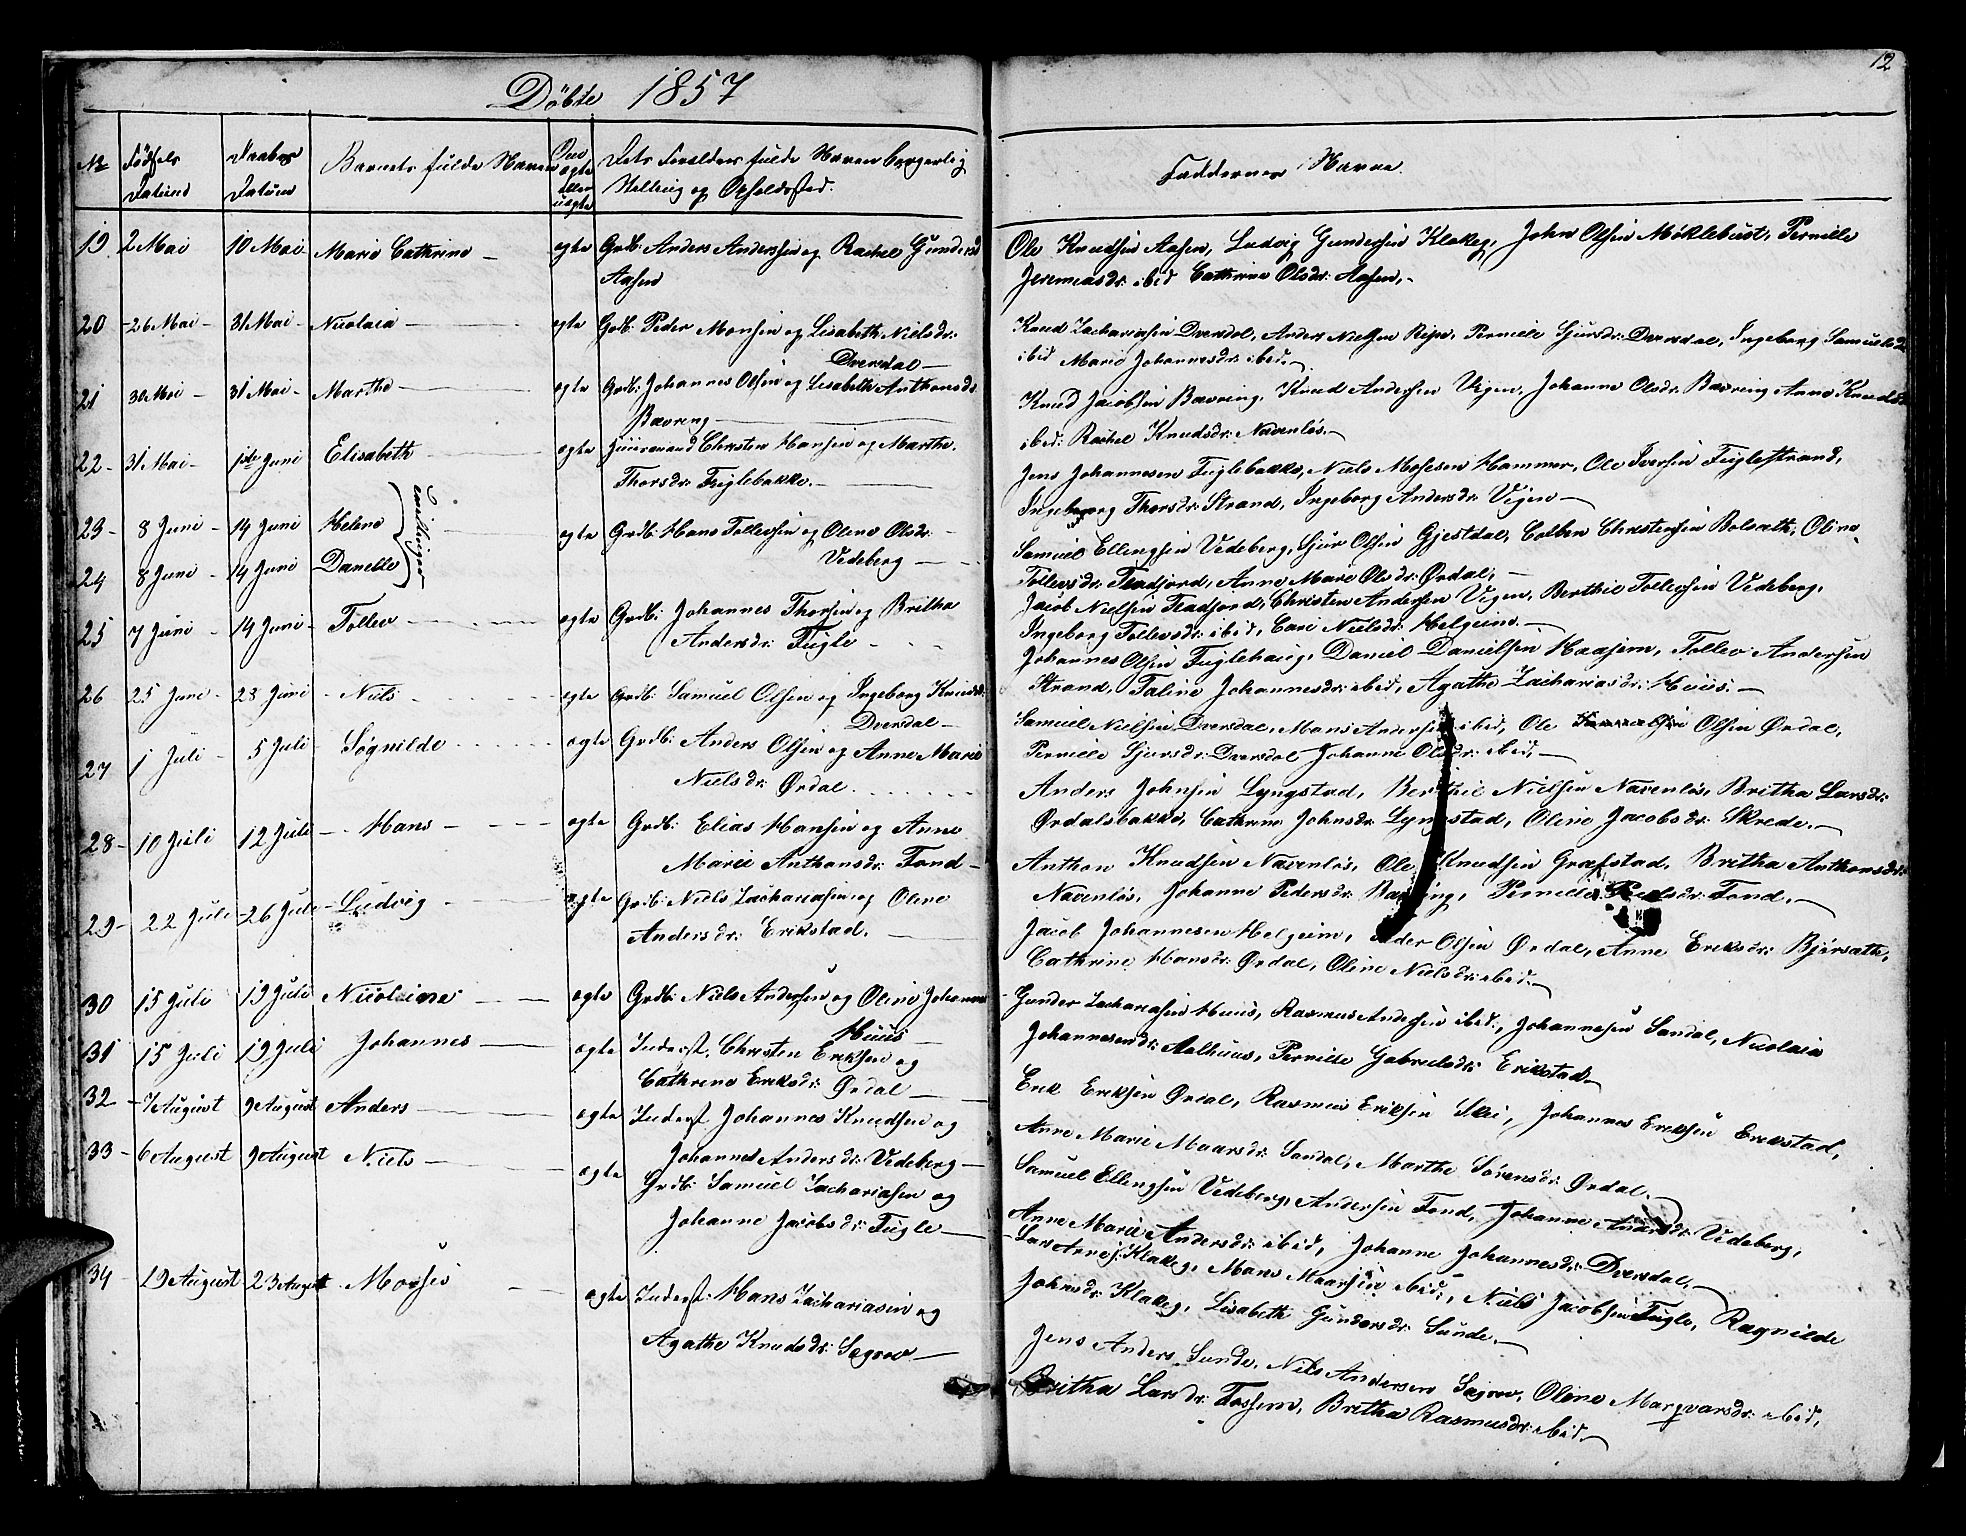 12
Döbte 1857
No Födsels Datum
Daabens Datum
Barnets fulde Navn
Om ægte eller uægte
Dets Forældres fulde Navne borgerlig Stilling og Opholdssted.
Faddernes Navne.
19 2 Mai 10 Mai Marie Cathrine ægte Grdb: Anders Anderssen og Rachel Gundersd
Aasen
Ole Knudssen Aasen, Ludvig Gunderssen Klakeg, John Olssen Møklebust, Pernille
Jeremiasdr: ibid Cathrine Olsdr: Aasen,
20 26 Mai 31 Mai Nicolaia ægte Grdb: Peder Monssen og Lisabeth Nielsdr:
Dversdal
Knud Zachariassen Dversdal, Anders Nielssen Ripe, Pernille Sjursdr: Dversdal, Ingeborg Samuelsd
ibid Marie Johannesdr: ibid.
21 30 Mai 31 Mai Marthe ægte Grdb: Johannes Olssen og Lisabeth Anthonsdr
Bævreng
Knud Jacobssen Bævring, Knud Anderssen Vigen, Johanne Olsdr: Bævring Anne Knudsd
ibid: Rachel Knudsdr: Navenløs.
22 31 Mai 1ste Juni Elisabeth ægte Huusmand Christen Hanssen og Marthe
Thorsdr: Fuglebakke.
Jens Johannesen Fuglebakke, Niels Mosesen Hammer, Ole Iverssen Fuglestrand,
Ingeborg Thorsdr: Strand, Ingeborg Andersdr: Vigen
23 8 Juni 14 Juni Helene
Tvillinger
ægte Grdb: Hans Tollevssen og Oline Olsdr:
Vedeberg
24 8 Juni 14 Juni Danelle
Samuel Ellingssen Vedeberg, Sjur Olssen Gjestdal, Christenssen Bolsæth, Oline
Tollevsdr: Aardal, Anne Marie Olsdr: Ørdal,
Jacob Nielssen Christen Andersen Vigen, Berthe Tollevssen Vedeberg,
Ingeborg Tollevsdr: ibid, Cari Nielsdr: Helgeim.
25 7 Juni 14 Juni Tollev ægte Grdb: Johannes Thorssen og Britha
Andersdr: Fugle
Johannes Olssen Fuglehaug, Daniel Danielssen Tollev Andersen
Strand, Taline Johannesdr: ibid, Agathe Zachariasdr: Huus.
26 25 Juni 28 Juni Niels ægte Grdb: Samuel Olssen og Ingeborg Knudsd:
Dversdal
Samuel Nielssen Dversdal, Mons Anderssen ibid, Ole Olssen Ørdal,
Pernille Sjursdr: Dversdal Johanne Olsdr: ibid,
27 1 Juli 5 Juli Søgnilde ægte Grdb: Anders Olssen og Anne Marie
Nielsdr: Ørdal
Anders Johnssen Lyngstad, Nielssen Navenløs, Britha Larsdr:
Ørdalsbakke, Cathrine Johnsdr: Lyngstad, Oline Jacobsdr: Skrede.
28 10 Juli 12 Juli Hans ægte Grdb: Elias Hanssen og Anne
Marie Anthonsdr: Fond
Anthon Knudssen Navenløs, Ole Knudssen Græfstad, Britha Anthonsdr:
Navenløs, Johanne Pedersdr: Pernille Fond.
29 22 Juli 26 Juli Ludvig ægte Grdb: Niels Zachariassen og Oline
Andersdr: Erikstad.
Jacob Johannesen Helgeim, Olssen Ørdal, Anne Eriksdr: Bjørsæth,
Cathrine Hansdr: Ørdal, Oline Nielsdr: ibid.
30 15 Juli 19 Juli Nicoline ægte Grdb: Niels Anderssen og Oline Johannesd
Huus
Gunder Zachariassen Huus, Rasmus Anderssen ibid., Johannessen Sandal, Nicolaia
Johannesendr: Aalhuus, Pernille Gabrielsdr: Erikstad
31 15 Juli 19 Juli Johannes ægte Inderst, Christen Erikssen og
Cathrine Eriksdr: Ørdal
Erik Erikssen Ørdal, Rasmus Erikssen Skei, Johannes Erikssen Erikstad,
Anne Marie Maarsdr: Sandal, Marthe Sørensdr: Ørdal.
32 7 August 9 August Anders ægte Inderst Johannes Knudssen og
Johanne Andersdr: Vedeberg
Samuel Ellingssen Vedeberg, Anderssen Fond, Johanne Andersdr: Vedeberg,
Anne Marie Andersdr: ibid, Johanne Johannesdr: Dversdal.
33 6 August 9 August Niels ægte Grdb: Samuel Zachariassen og
Johanne Jacobsdr: Fugle
Lars Klakeg, Mons Maarssen ibid:, Niels Jacobssen Fugle, Ragnilde
Johnsdr: Klakeg, Lisabeth Gundersdr: Sunde.
34 19 August 23 August Moses ægte Inderst: Hans Zachariassen og
Agathe Knudsdr: Søgnes
Jens Anders Sunde, Nils Andersen Oline Marqvarsdr: ibid,
Britha Larsdr: Fossem, Britha Rasmusdr: ibid.